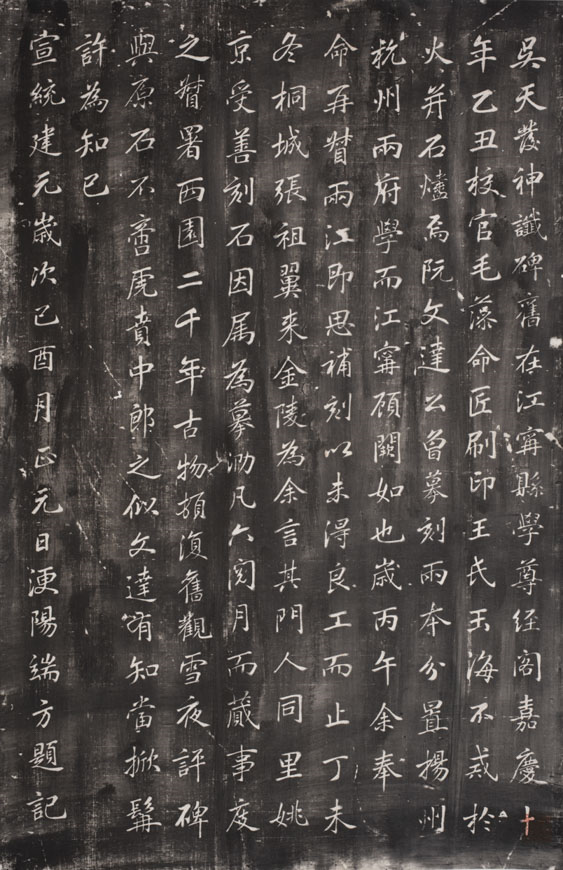 吳天發神讖碑舊在江寧縣學尊経閣嘉慶十
年乙丑校官毛藻命匠刷印王氏玉海不戒於
火并石爐焉阮文達公曾摹刻兩本分置揚州
杭州兩府學而江寧顧闕如也歲丙午余奉
命再督兩江即思補刻以未得良工而止丁未
冬桐城張祖翼来金陵為余言其門人同里姚
京受善刻石因属為摹泐凡六閱月而蕆事度
之督署西園二千年古物頓復舊觀雪夜評碑
與原石不啻虎賁中郎之似文達有知當掀髯
許為知己
宣統建元歲次己酉月正元日浭陽端方題記